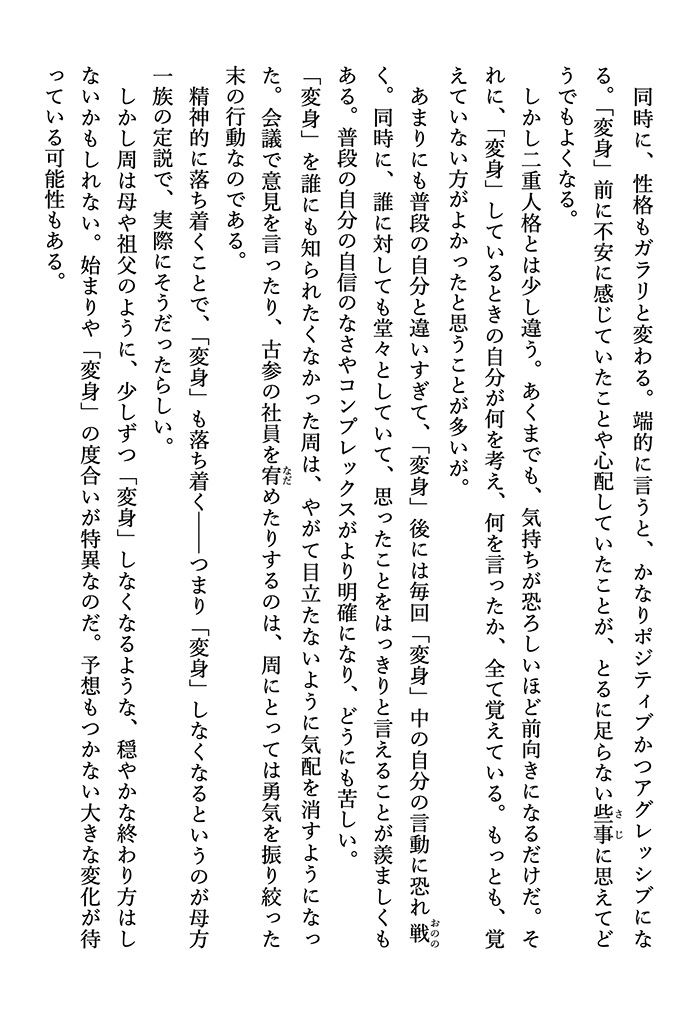 同時に、性格もガラリと変わる。端的に言うと、かなりポジティブかつアグレッシブにな
る。「変身」前に不安に感じていたことや心配していたことが、とるに足らない些事に思えてど
うでもよくなる。
　しかし二重人格とは少し違う。あくまでも、気持ちが恐ろしいほど前向きになるだけだ。そ
れに、「変身」しているときの自分が何を考え、何を言ったか、全て覚えている。もっとも、覚
えていない方がよかったと思うことが多いが。
　あまりにも普段の自分と違いすぎて、「変身」後には毎回「変身」中の自分の言動に恐れ戦
く。同時に、誰に対しても堂々としていて、思ったことをはっきりと言えることが羨ましくも
ある。普段の自分の自信のなさやコンプレックスがより明確になり、どうにも苦しい。
　「変身」を誰にも知られたくなかった周は、やがて目立たないように気配を消すようになっ
た。会議で意見を言ったり、古参の社員を宥めたりするのは、周にとっては勇気を振り絞った
末の行動なのである。
　精神的に落ち着くことで、「変身」も落ち着く――つまり「変身」しなくなるというのが母方
一族の定説で、実際にそうだったらしい。
　しかし周は母や祖父のように、少しずつ「変身」しなくなるような、穏やかな終わり方はし
ないかもしれない。始まりや「変身」の度合いが特異なのだ。予想もつかない大きな変化が待
っている可能性もある。
さじ
おのの
なだ